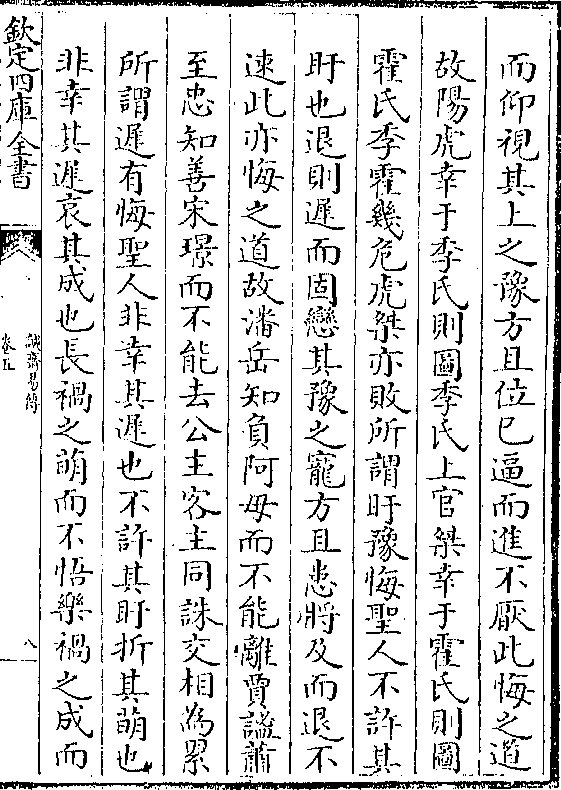 而仰視其上之豫方且位已逼而進不厭此悔之道
故陽虎幸于季氏則圖季氏上官桀幸于霍氏則圖
霍氏季霍幾危虎桀亦敗所謂盱豫悔聖人不許其
盱也退則遲而固戀其豫之寵方且患將及而退不
速此亦悔之道故潘岳知負阿母而不能離賈謐蕭
至忠知善宋璟而不能去公主客主同誅交相為累
所謂遲有悔聖人非幸其遲也不許其盱折其萌也
非幸其遲哀其成也長禍之萌而不悟樂禍之成而
欽定四庫全書
誠齋易傳
卷五
八